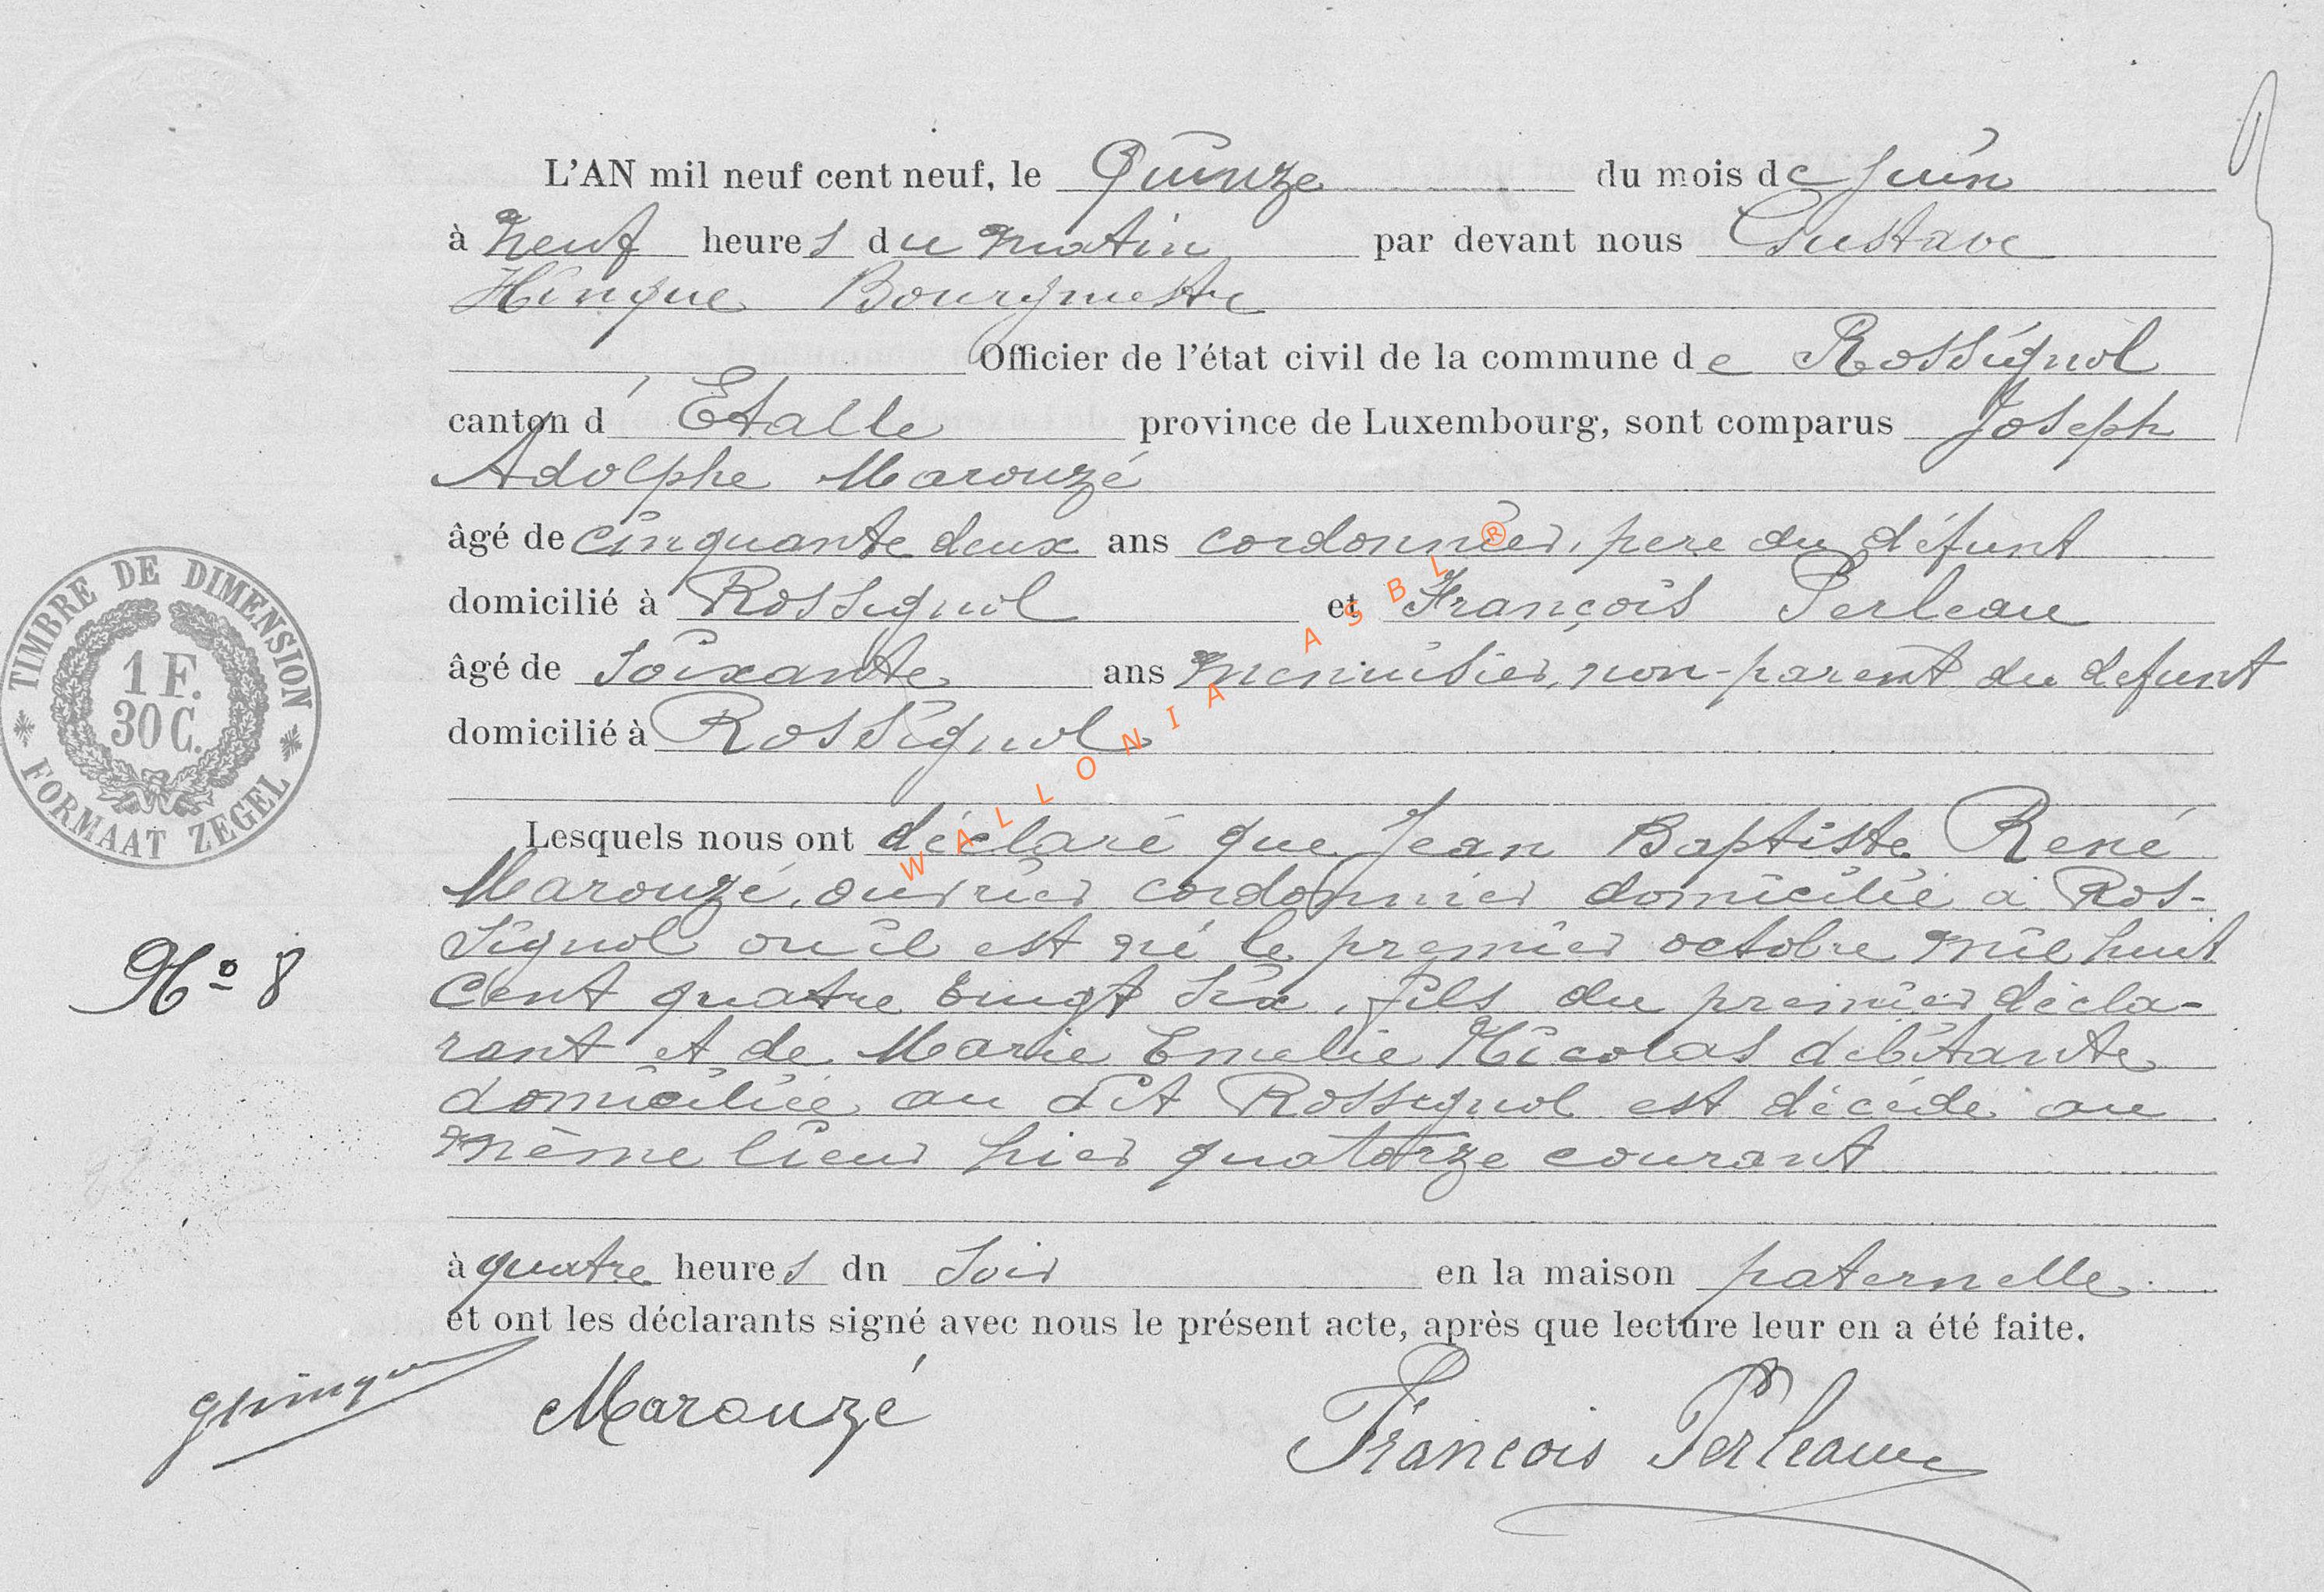 L'AN mil neuf cent neuf, le Quinze du mois de Juin
à neuf heures du matin par devant nous Gustave
Hinque Bourgmestre
Officier de l'état civil de la commune de Rossignol
canton d'Etalle province de Luxembourg, sont comparus Joseph
Adolphe Marouzé
âgé de cinquante deux ans cordonnier, pere du défunt
domicilié à Rossignol et François Perleau
âgé de soixante ans menuisier, non-parent du defunt
domicilié à Rossignol
Lesquels nous ont déclaré que Jean Baptiste René
Marouzé, ouvrier cordonnier domicilié à Ros-
signol où il est né le premier octobre mil huit
cent quatre vingt six, fils du premier décla-
rant et de Marie Emelie Nicolas débitante
domiciliée au dit Rossignol est décédé au
même lieu hier quatorze courant
à quatre heures du soir en la maison paternelle
et ont les déclarants signé avec nous le présent acte, après que lecture leur en a été faite.
GHinque Marouzé François Perleaux
N° 8
TIMBRE DE DIMENSION
1 F.
30 C.
FORMAAT ZEGEL
WALLONIA ASBL ®